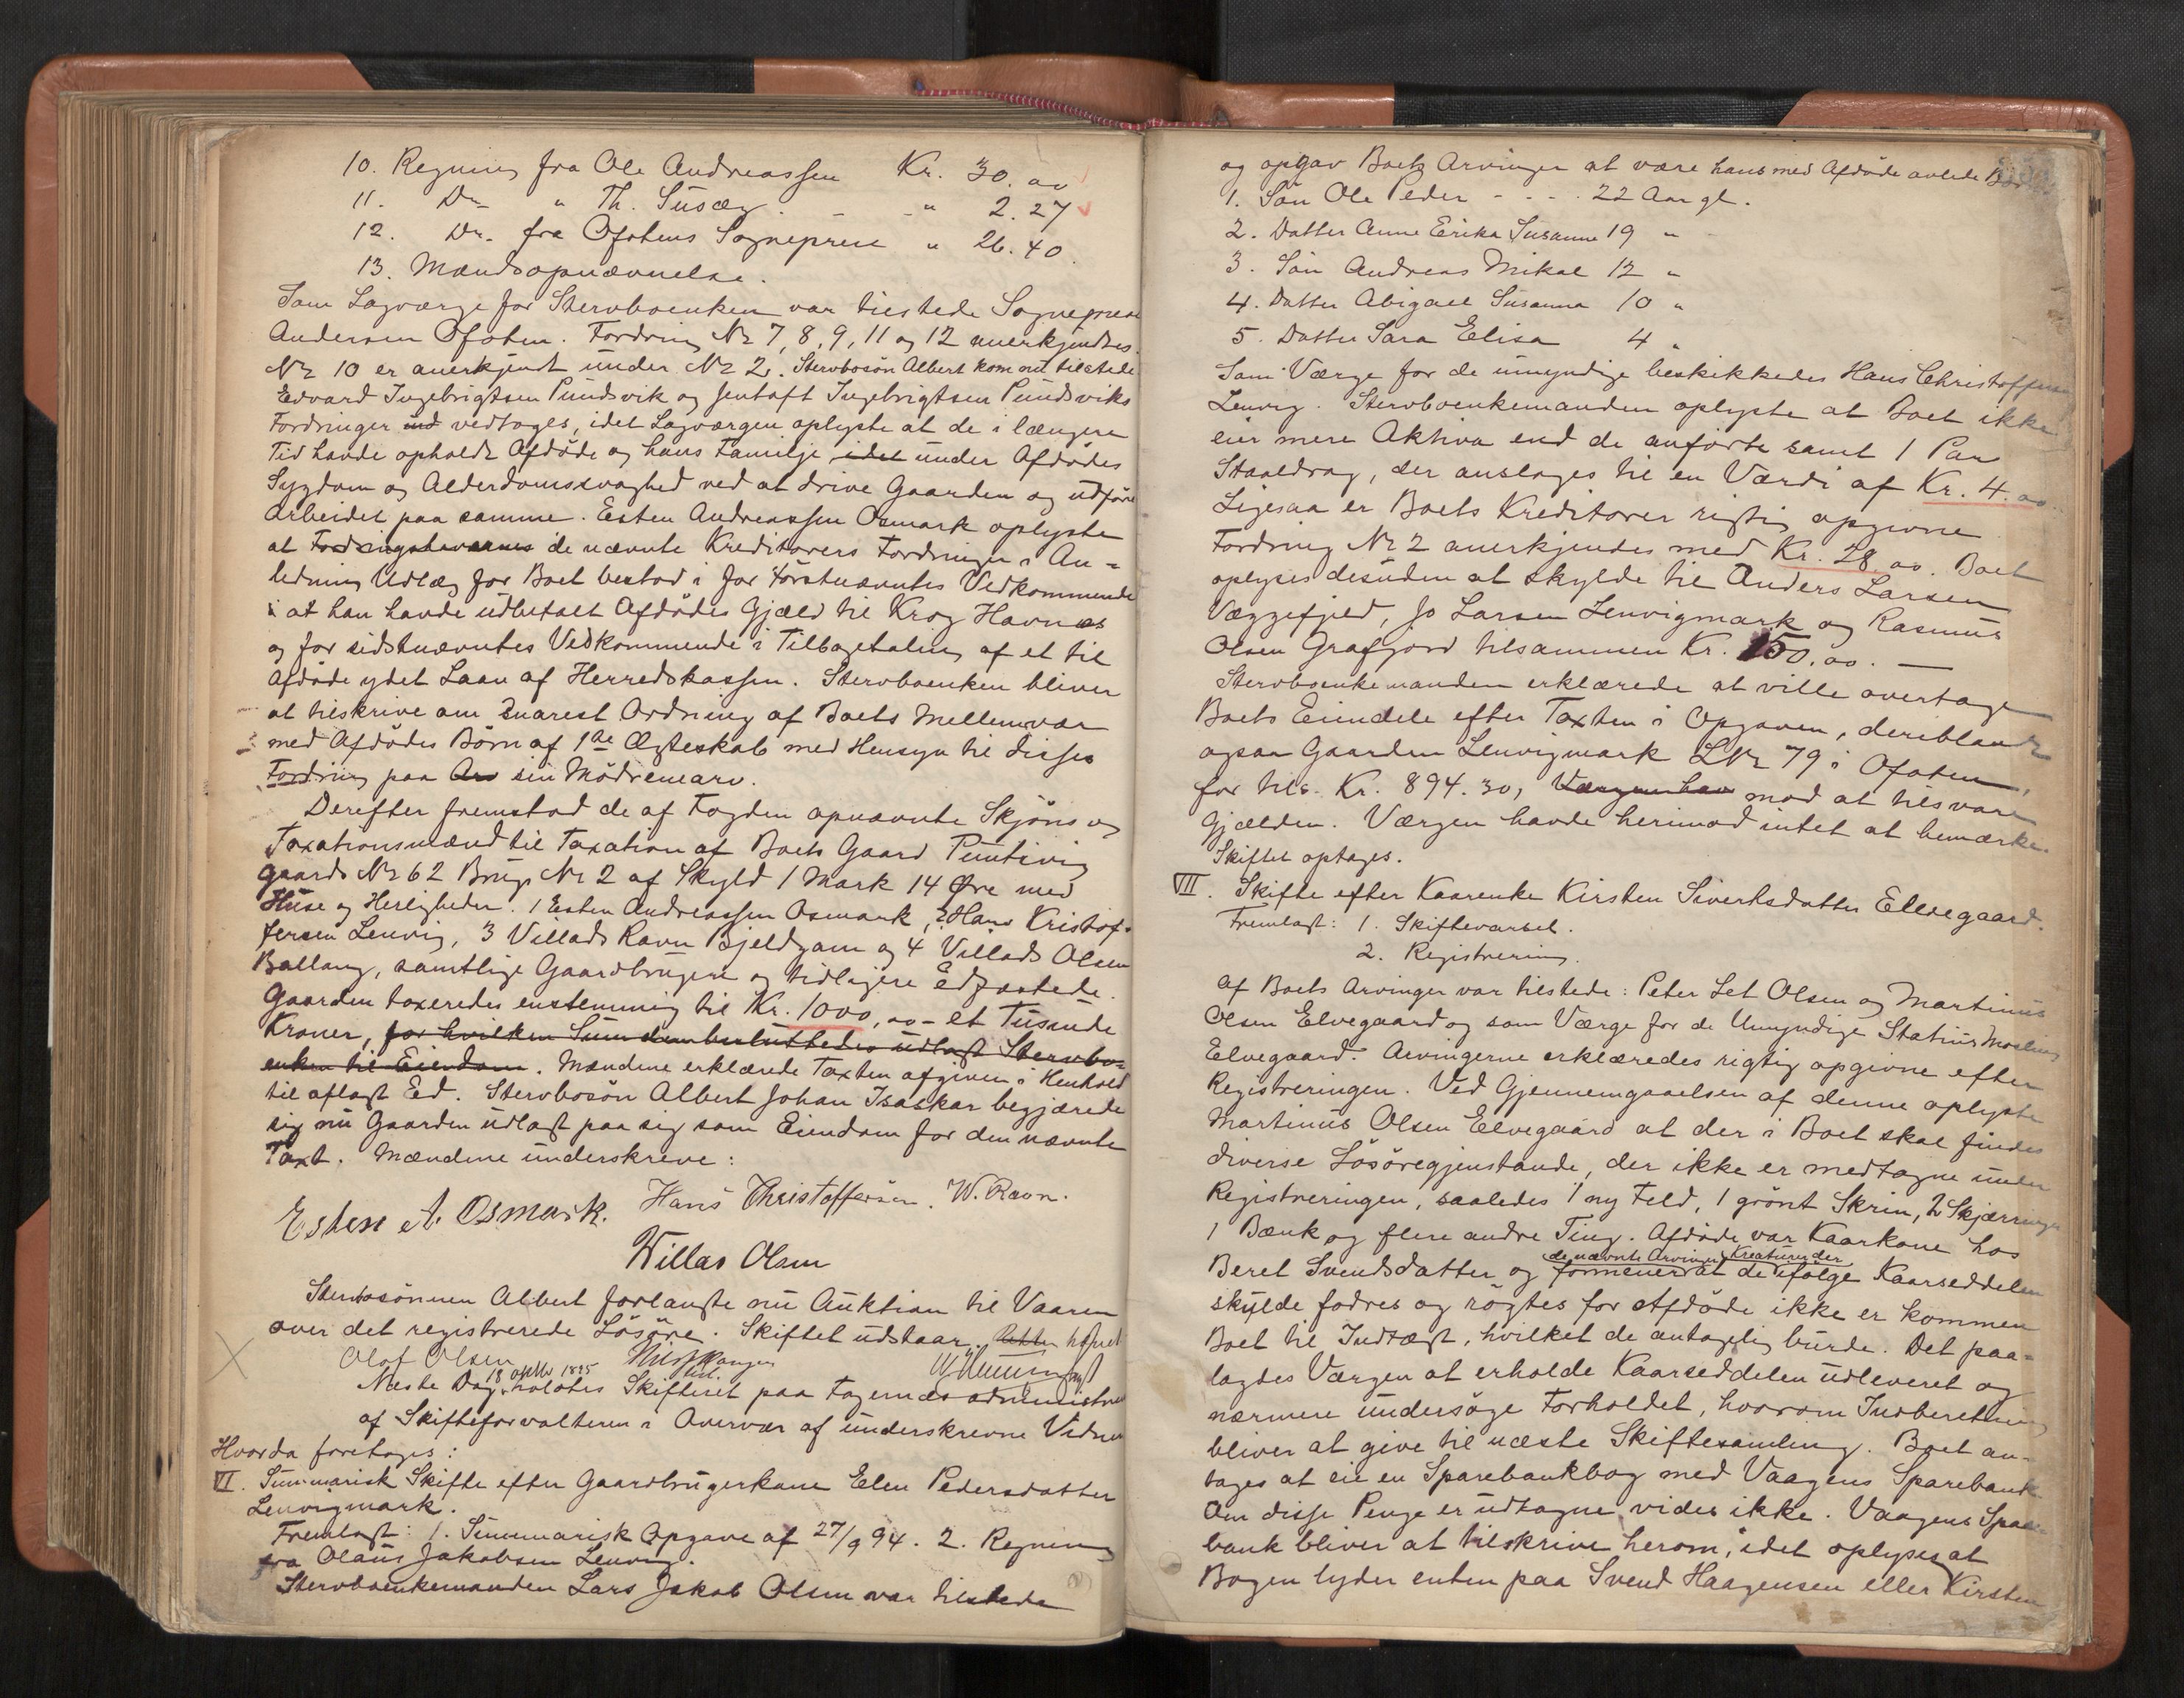 10. Regning fra Ole Andreassen Kr. 30.00
11. Do " Th. Susæg. - - " 2.27
12. Do. fra Ofotens Sogneprest " 26.40.
13. Mændsopnævnelse.
Som Lagværge for Stervboenken var tilstede Sogneprest
Andersen Ofoten. Fordring No 7, 8, 9, 11 og 12 anerkjendtes.
No 10 er anerkjent under No 2. Stervbosön Albert kom nu tilstede
Edvard Ingebrigtsen Pundsvik og Jentoft Ingebrigtsen Pundsviks
Fordringer vedtoges, idet Lagværgen oplyste at de i længere
Tid havde opholdt Afdöde og hans Familje idet under Afdödes
Sygdom og Alderdomssvaghed ved at drive Gaarden og udföre
Arbeidet paa samme. Esten Andreassen Osmark oplyste
at Fordringshaverne de nævnte Kreditorers Fordringer i An-
ledning Udlæg for Boet bestod i for förstnævntes Vedkommende
i at han havde udbetalt Afdödes Gjæld til Krog Havnæs
og for sidstnævntes Vedkommende i Tilbagetaling af et til
Afdöde ydet Laan af Herredskassen. Stervboenken bliver
at tilskrive om snarest Ordning af Boets Mellemvær
med Afdödes Börn af 1ste Ægteskab med Hensyn til disses
Fordring paa Arv sin Mödrenearv.
Derefter fremstod de af Fogden opnævnte Skjöns og
Taxationsmænd til Taxation af Boets Gaard Puntsvig
Gaards No 62 Brugs No 2 af Skyld 1 Mark 14 Öre med
Huse og Herligheder. 1 Esten Andreassen Osmark, 2 Hans Kristof-
fersen Lenvig, 3 Villads Ravn Bjeldgam og 4 Villads Olsen
Ballang, samtlige Gaardbrugere og tidligere Edfæstede.
Gaarden taxeredes enstemmig til Kr. 1000,00 - et Tusinde
Kroner, for hvilken Sum den besluttedes udlagt Stervbo-
enken til Eiendom. Mændene erklærede Taxten afgiven i Henhold
til aflagt Ed. Stervbosön Albert Johan Isaskar begjærede
sig nu Gaarden udlagt paa sig som Eiendom for den nævnte
Taxt. Mændene underskreve:
Esten A. Osmark. Hans Christoffersen. W. Ravn.
Willas Olsen
Stervbosönnen Albert forlangte nu Auktion til Vaaren
over det registrerede Lösöre. Skiftet udstaar. Retten hævet
Olaf Olsen
Næste Dag 18 oktbr 1895 holdtes Skifteret paa Fagernæs administreret
af Skifteforvalteren i Overvær af underskrevne Vidner
Hvorda foretoges:
VI. Summarisk Skifte efter Gaardbrugerkone Elen Pedersdatter
Lenvigmark.
Fremlagt: 1. Summarisk Opgave af 27/9 94. 2. Regning
fra Olaus Jakobsen Lenvig.
Stervboenkemanden Lars Jakob Olsen var tilstede
og opgav Boets Arvinger at være hans med Afdöde avlede Börn
1. Sön Ole Peder - - - 22 Aar gl.
2. Datter Anne Erika Susanne 19 "
3. Sön Andreas Mikal 12 "
4. Datter Abigael Susanna 10 "
5. Datter Sara Elisa 4 "
Som Værge for de umyndige beskikkedes Hans Christoffersen
Lenvig. Stervboenkemanden oplyste at Boet ikke
eier mere Aktiva end de anförte samt 1 Par
Staaldrag, der anslages til en Værdi af Kr. 4.00
Ligesaa er Boets Kreditorer rigtig opgivne
Fordring No 2 anerkjendes med Kr. 28.00. Boet
oplyses desuden at skylde til Anders Larsen
Væggefjeld, Jo Larsen Lenvigmark og Rasmus
Olsen Grafjord tilsammen Kr. 150.00. -
Stervboenkemanden erklærede at ville overtage
Boets Eiendele efter Taxten i Opgaven, deriblandt
ogsaa Gaarden Lenvigmark LNo 79 i Ofoten,
for tils. Kr. 894.30, Værgen hav mod at tilsvare
Gjælden. Værgen havde herimod intet at bemærke.
Skiftet optages.
VII. Skifte efter Kaarenke Kirsten Sivertsdatter Elvegaard.
Fremlagt: 1. Skiftevarsel.
2. Registrering.
Af Boets Arvinger var tilstede: Peter Let Olsen og Martinus
Olsen Elvegaard og som Værge for de Umyndige Statius
Elvegaard. Arvingerne erklæredes rigtig opgivne efter
Registreringen. Ved Gjennemgaaelsen af denne oplyste
Martinus Olsen Elvegaard at der i Boet skal findes
diverse Lösöregjenstande, der ikke er medtagne under
Registreringen, saaledes 1 ny Feld, 1 grönt Skrin, 2 Skjærringer
1 Bænk og flere andre Ting. Afdöde var Kaarkone hos
de nævnte Arvinger Kreaturer der
Beret Svendsdatter og formener at de ifölge Kaarseddelen
skulde fodres og rögtes for Afdöde ikke er kommen
Boet til Indtægt, hvilket de antagelig burde. Det paa-
lagdes Værgen at erholde Kaarseddelen udleveret og
nærmere undersöge Forholdet, hvorom Indberetning
bliver at give til næste Skiftesamling. Boet an-
tages at eie en Sparebankbog med Vaagens Sparebank
Om disse Penge er udtagne vides ikke. Vaagens Spare-
bank bliver at tilskrive herom, idet oplyses at
Bogen lyder enten paa Svend Haagensen eller Kirsten